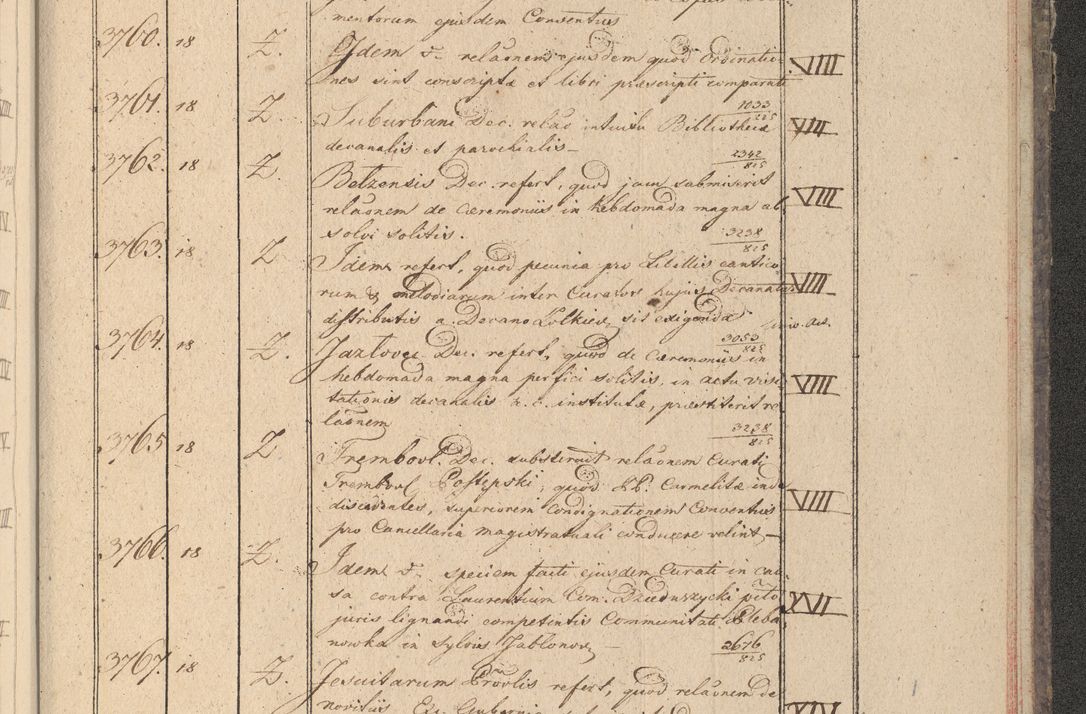 mentorum ejusdem Conventus
3760. 18 Z. Idem &c. relaõnem ejusdem quod Ordinatio-
nes sint conscriptæ et libri præscripti comparati VIII
3761. 18 Z. Suburbani Dec. relaõ intuitu Bibliothecæ 1033/825 VIII
decanalis et parochialis—
3762. 18 Z. Belzensis Dec. refert, quod jam submiserit 2342/825 VIII
relaõnem de Cæremoniis in hebdomada magna ab
solvi solitis.
3763. 18 Z Idem refert, quod pecunia pro Libellis cantico 3238/825 VIII
rum & melodiarum inter Curatos hujus Decanatus
distributis a Decano Zolkiev, sit exigenda
3764. 18 Z. Jazlovec. Dec. refert, quod de Cæremoniis in 3053/825
hebdomada magna perfici solitis, in actu visi VIII
tationis decanalis h. c. institutæ, præstiterit re
laõnem 3238/825
3765 18 Z Trembovl. Dec. substernit relaõnem Curati
Trembovl Postępski, quod PP. Carmelitæ inde
discedentes, superiorem Condignationem Conventus VIII
pro Cancellaria magistratuali conducere velint,—
3766. 18 Z. Idem &c. speciem facti ejusdem Curati in cau
sa contra Laurentium Com. Dzieduszycki pcto XVII
juris lignandi competentis Communitati Pleba
nowka in Sylvis Jablonov,— 2676/825
3767. 18 Z. Jesuitarum Provlis refert, quod relaõnem de
novitiis Ex. Gubernio XIV